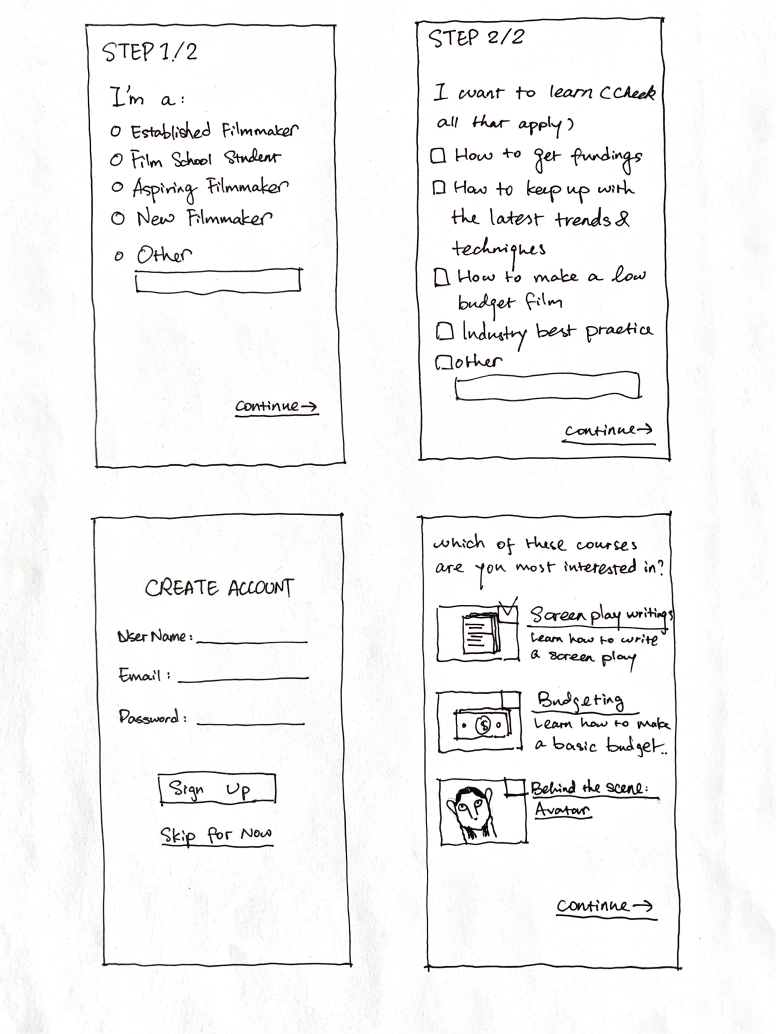 STEP 1/2
I'm a:
Established Filmmaker
Film School Student
Aspiring Filmmaker
New Filmmaker
Other
Continue→
STEP 2/2
I want to learn (Check
all that apply)
How to get fundings
How to keep up with
the latest trends &
techniques
How to make a low
budget film
Industry best practice
other
Continue→
CREATE ACCOUNT
User Name:
Email:
Password:
Sign Up
Skip for Now
which of these courses
are you most interested in?
Screen play writings
Learn how to write
a screen play
$
Budgeting
Learn how to make
a basic budget..
Behind the scene:
Avatar
Continue→